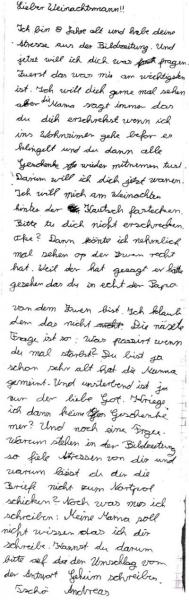 Lieber Weinachtsmann!!
Ich bin 8 Jahre alt und habe deine
Adresse aus der Bildzeitung. Und
jetzt will ich dich was fragen.
Zuerst das was mir am wichtigsten
ist. Ich will dich gerne mal sehen
aber die Mama sagt immer das
du dich erschrekst wenn ich
ins Wohnzimer gehe befor es
klingelt und du dann alle
Geschenke wieder mitnemen tust.
Darum will ich dich jetzt warnen.
Ich will mich am Weinachten
hinter der Kautsch fastecken.
Bitte tu dich nicht erschrecken
Oke? Dann könte ich nehmlich
mal sehen op der Swen recht
hat. Weil der hat gesagt er hätte
gesehen das du in echt der Papa
von dem Swen bist. Ich klaub
dem das nicht. Die näste
Frage ist so: Was passirt wenn
du mal sterbst? Du bist ja
schon sehr alt hat die Mamma
gemeint. Und unsterbend ist ja
nur der liebe Got. Kriege
ich dann keine Geschenke
mer? Und noch eine Frage.
Warum stehen in der Bildzeitung
so fiele Adressen von dir und
warum lässt du dir die
Briefe nicht zum Nortpol
schicken? Noch was mus ich
schreiben: Meine Mama soll
nicht wissen das ich dir
schreibe. Kannst du darum
bitte auf den Umschlag von
der Antwort Geheim schreiben.
Tschö Andreas